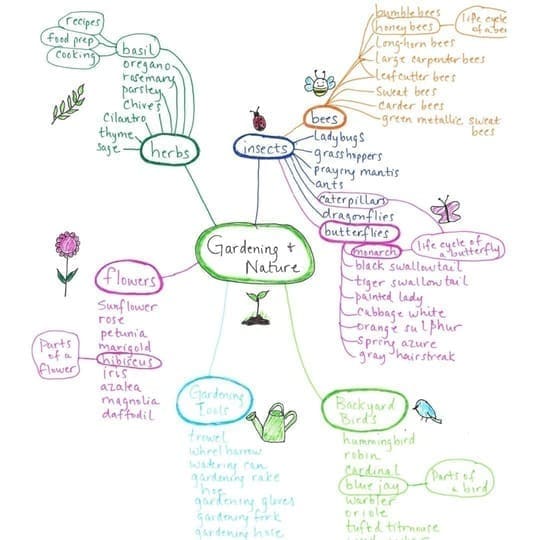 recipes
food prep
cooking
basil
oregano
rosemary
parsley
chives
cilantro
thyme
sage
herbs
bumble bees
honey bees
life cycle
of a bee
Long-horn bees
Large carpenter bees
Leafcutter bees
Sweat bees
Carder bees
green metallic sweat
bees
bees
insects
Ladybugs
grasshoppers
praying mantis
ants
caterpillars
dragonflies
butterflies
monarch
life cycle of
a butterfly
black swallowtail
tiger swallowtail
painted lady
cabbage white
orange sulphur
spring azure
gray hairstreak
Gardening +
Nature
flowers
Sunflower
rose
petunia
marigold
hibiscus
Parts
of a
flower
iris
azalea
magnolia
daffodil
Gardening
Tools
trowel
wheel barrow
watering can
gardening rake
hoe
gardening gloves
gardening fork
gardening hose
Backyard
Birds
hummingbird
robin
cardinal
blue jay
Parts of
a bird
warbler
oriole
tuftd titmouse